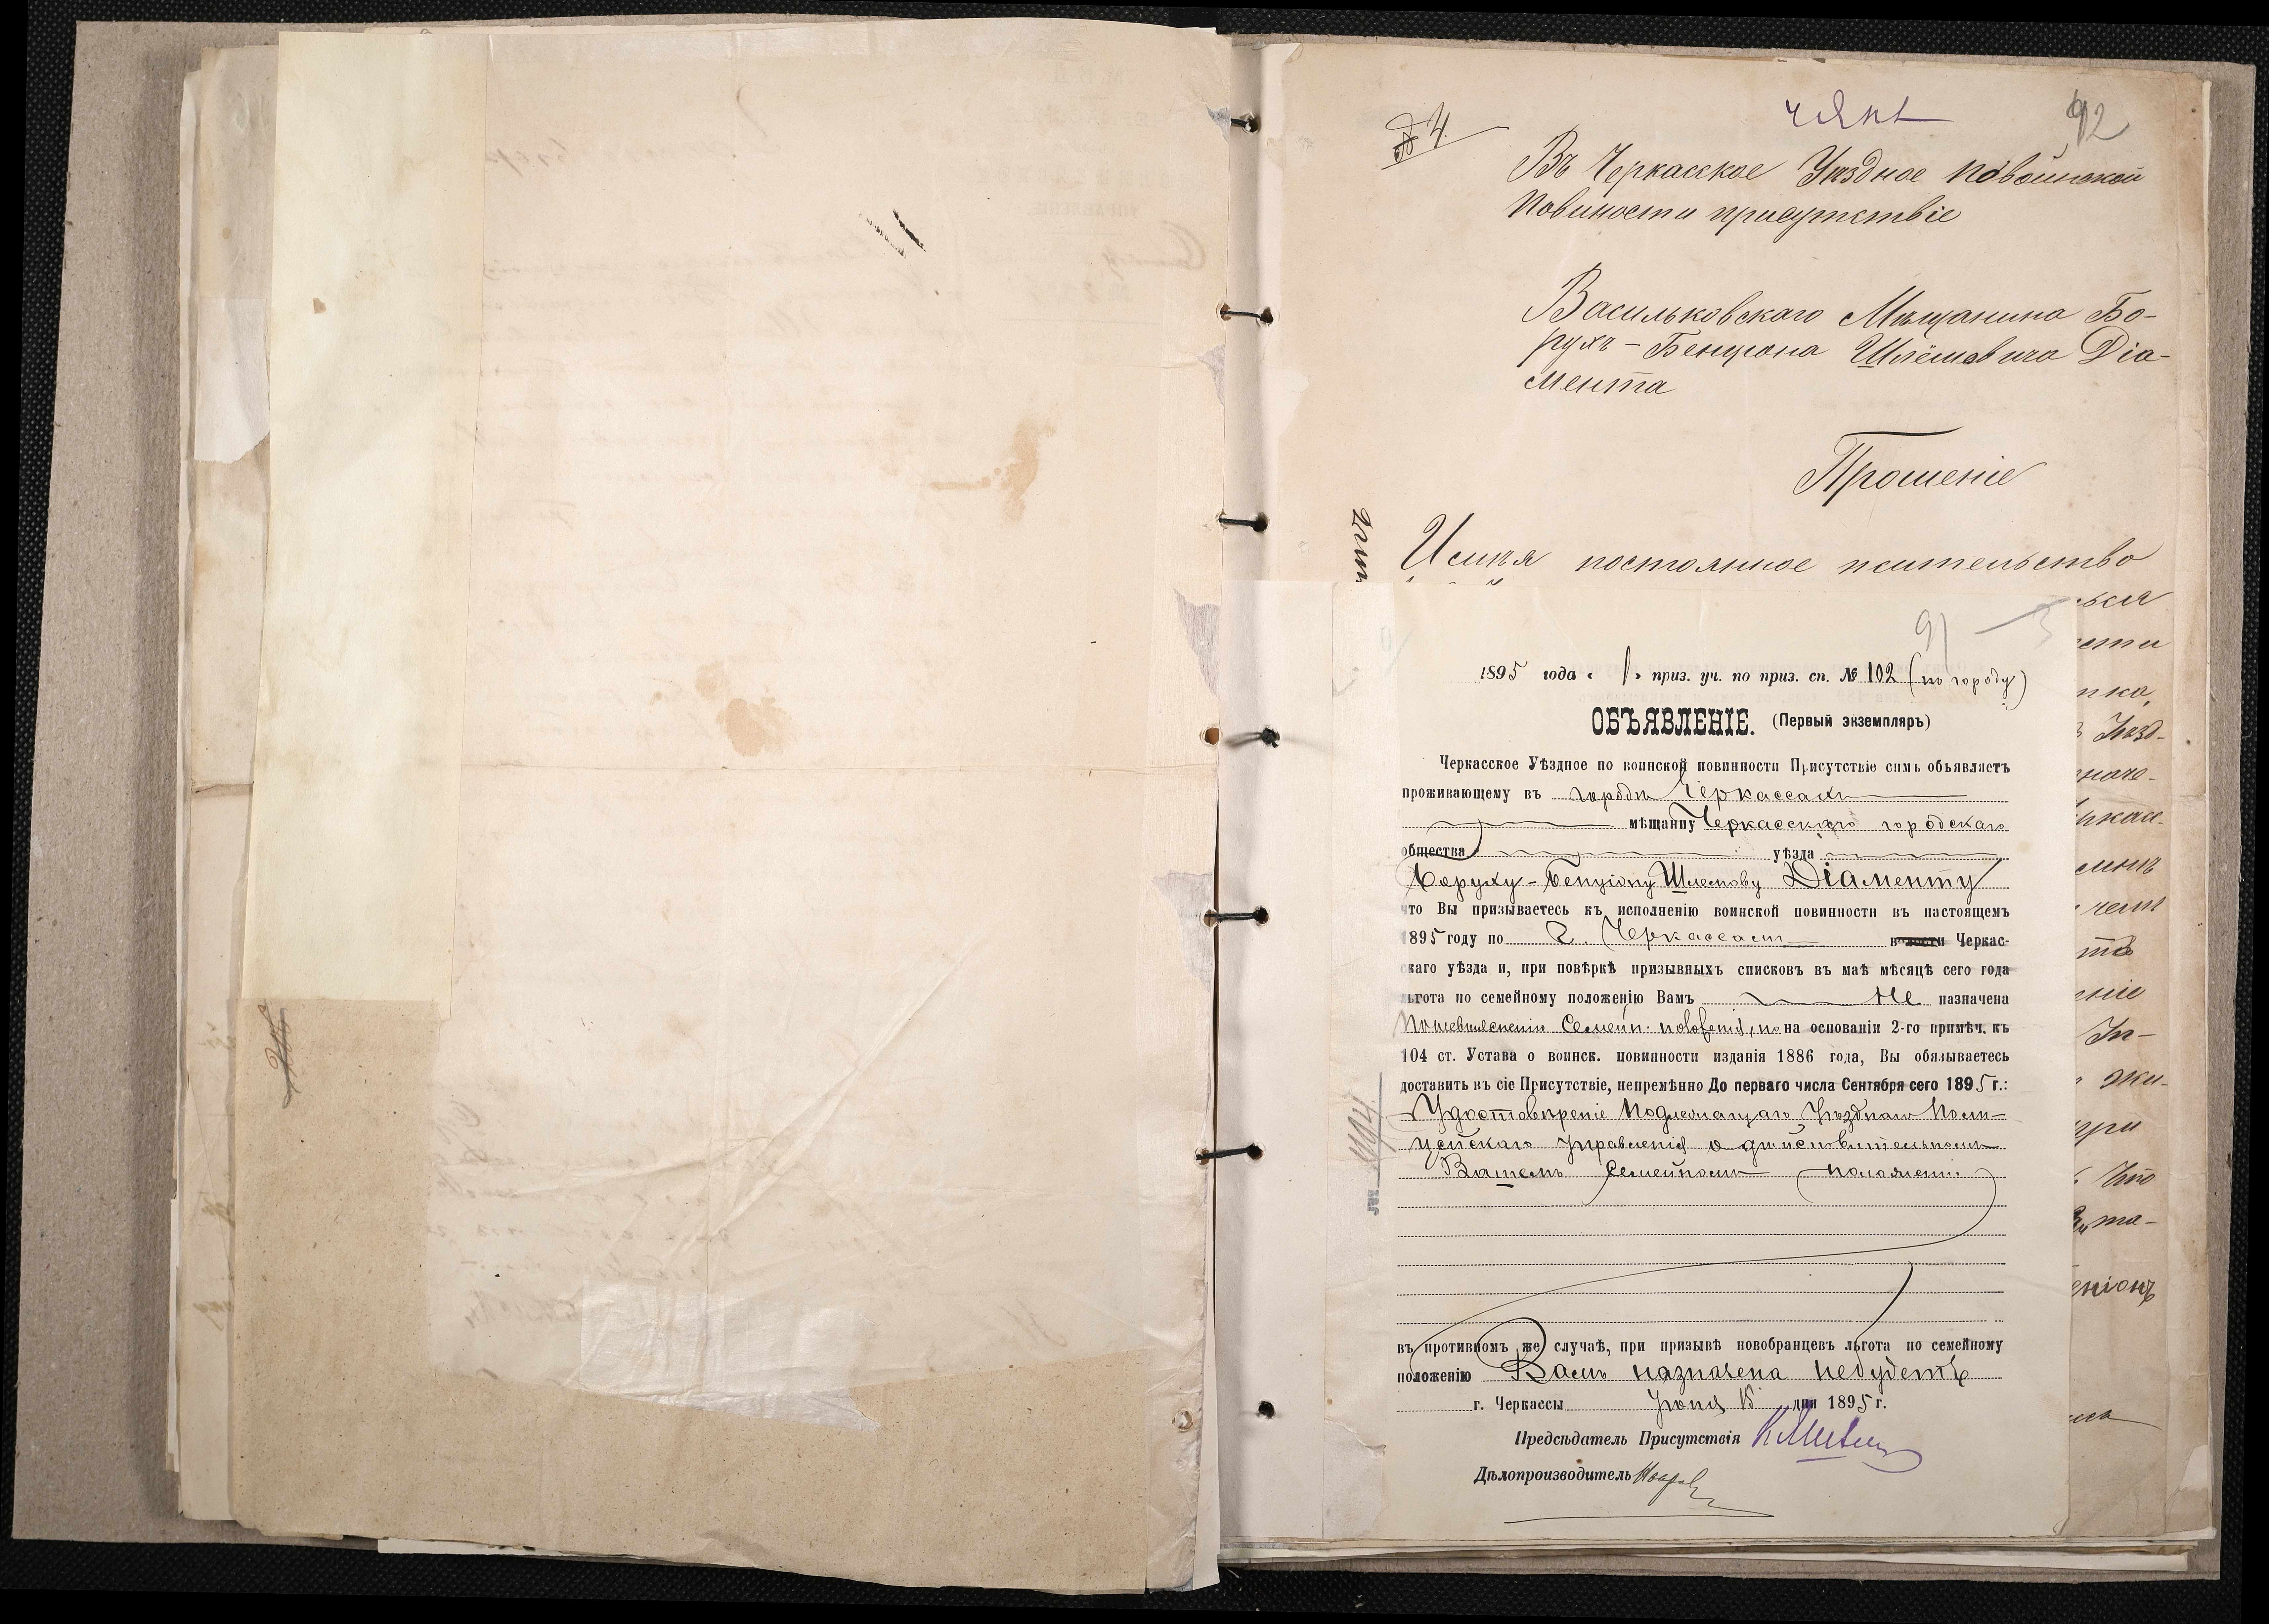 № 4.
92
Въ Черкасское Уѣздное по воинской
повиности присутствіе
Васильковскаго Мѣщанина Бо-
рухъ-Бенціона Шлёмовича Діа-
мента
Прошеніе
Имѣя постоянное жительство
91
1895 года « 1 » приз. уч. по приз. сп. № 102 (по городу)
ОБЪЯВЛЕНІЕ. (Первый экземпляръ)
Черкасское Уѣздное по воинской повинности Присутствіе симъ объявляетъ
проживающему въ городѣ Черкассахъ
мѣщанину Черкасскаго городскаго
общества уѣзда
Боруху-Бенціону Шлемову Діаменту
что Вы призываетесь къ исполненію воинской повинности въ настоящемъ
1895 году по г. Черкассамъ волости Черкас-
скаго уѣзда и, при повѣркѣ призывныхъ списковъ въ маѣ мѣсяцѣ сего года
льгота по семейному положенію Вамъ не назначена
по невыясненію Семейн. положенія, но на основаніи 2-го примѣч. къ
104 ст. Устава о воинск. повинности изданія 1886 года, Вы обязываетесь
доставить въ сіе Присутствіе, непремѣнно До перваго числа Сентября сего 1895 г.:
Удостовѣреніе Подлежащаго Уѣзднаго Поли-
цейскаго Управленія о дѣйствительномъ
Вашемъ Семейномъ положеніи
въ противномъ же случаѣ, при призывѣ новобранцевъ льгота по семейному
положенію Вамъ назначена небудетъ
г. Черкассы Іюня 15 дня 1895 г.
Предсѣдатель Присутствія
Дѣлопроизводитель